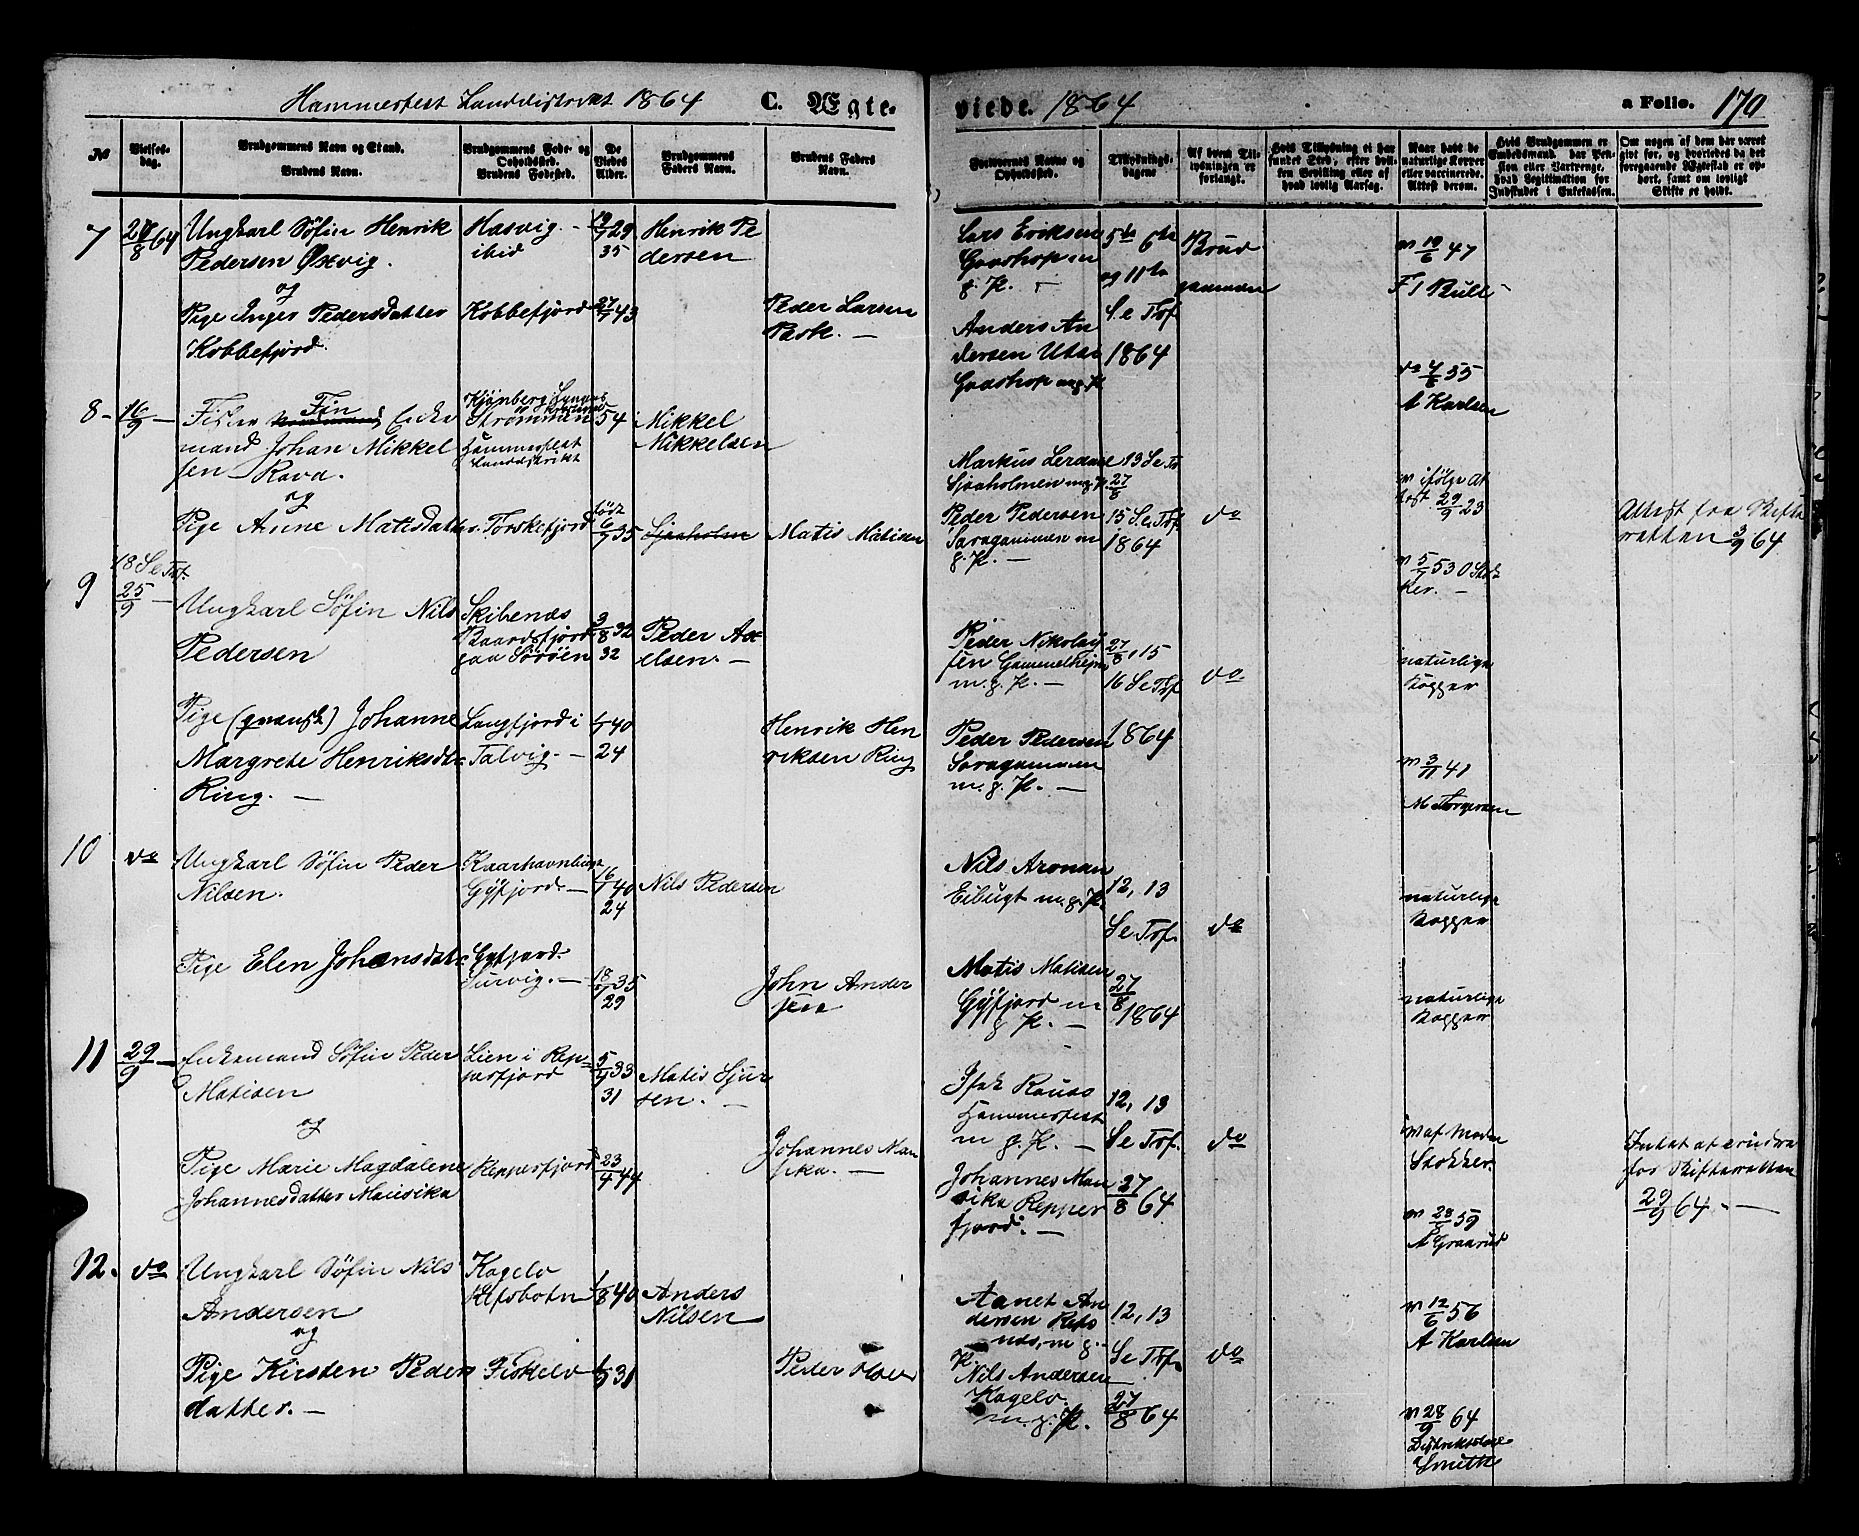 Hammerfest Landdistrikt 1864 C. Ægte-
viede. 1864 a Folio. 170
No
Vielses-
dag.
Brudgommens Navn og Stand.
Brudens Navn.
Brudgommens Føde- og
Opholdssted.
Brudens Fødested.
De
Viedes
Alder.
Brudgommens
Faders Navn.
Brudens Faders
Navn.
Forlovernes Navne og
Opholdssted.
Tillysnings-
dagene
Af hvem Til-
lysningen er
forlangt.
Hvis Tillysning ei har
fundet Sted, efter hvil-
ken Bevilling eller af
hvad lovlig Aarsag.
Naar havt de
naturlige Kopper
eller vaccinerede.
Attest derom.
Hvis Brudgommen er
Embedsmand, har Pen-
sion eller Vartpenge,
hvad Legitimation for
Indskudet i Enkekassen.
Om nogen af dem har været
gift før, og hvorledes da det
foregaaende Ægteskab er op-
hørt, samt om lovligt
Skifte er holdt.
7
28/8 64
Ungkarl Søfin Henrik
Pedersen Øxvig.
og
Pige Inger Pedersdatter
Kobbefjord.
Hasvig. -
ibid
Kobbefjord
19/7 29
35
27/7 43
Henrik Pe
dersen
Peder Larsen
Pask. -
Lars Eriksen
Gaashop m
g. K. -
Anders An
dersen Utsi
Gaashop m g. K
5te 6te
og 11te
S. e Tref.
1864
Brud
gommen
v 19/6 47
Fr Bull
v 4/6 55
A Karlsen
8 -
16/9 -
Fisker Fin Enke
mand Johan Mikkel
sen Rava.
og
Pige Anne Matisdatter
Kjønberg Lyngen
Strømmen
Hammerfest
Landdistrikt
Torskefjord
54
født
6/7 35
Nikkel
Nikkelsen
Sjaaholm
Matis Matisen
Markus Lerdal
Sjaaholmen m. g. K.
Peder Pedersen
Saragammen m
g. K. -
13 S e Tr
27/8
15 S. e Tref.
1864
do
v ifølge At
test 29/9 23
v 5/7 53 O Stok
ker. -
Attest fra Skifte
retten 3/9 64
9
18 S e Tref.
25/9 -
Ungkarl Søfin Nils
Pedersen
Pige (qvænsk) Johanne
Margrete Henriksdtr
Ring. -
Skibenæs
Baardsfjord
paa Sørøen
Langfjord i
Talvig. -
3/8 32
32
1/7 40
24
Peder Ax
elsen. -
Henrik Hen
riksen Ring
Peder Nikolaj
sen Gammelhejm
m. g. K. -
Peder Pedersen
Saragammen
m. g. K. -
27/8, 15
16 S e Tref
1864
do
naturlige
Kopper
v 3/11 41
M Torgersen
10
do
Ungkarl Søfin Peder
Nilsen.
Pige Elen Johansdatter
Kaarhavnbugt
Gyfjord. -
Gyfjord.
Survig. -
16/1 40
24
18/7 35
29
Nils Pedersen
John Ander
sen
Nils Aronsen
Eibugt m. g. K.
Matis Matisen
Gyfjord m
g. K. -
12, 13
S e Tref.
27/8
1864
do
naturlige
Kopper
naturlige
Kopper
11
29/9 -
Enkemand Søfin Peder
Matisen
og
Pige Marie Magdalene
Johannesdatter Mausika
Lien i Rep-
parfjord
Repperfjord
5/9 33
31
23/4 44
Matis Sjur
sen. -
Johannes Mau
sika. -
Isak Rauds
Hammerfest
m g. K. -
Johannes Mau
sika Repper
fjord. -
12, 13
S e Tref.
27/8 64
do
v af Moder
Stokker.
v 28/8 59
A Graarud
Intet at erindre
for Skifteretten
29/9 64. -
12.
do
Ungkarl Søfin Nils
Andersen
og
Pige Kirsten Peders
datter. -
Kogelv
Refsbotn
Fiskelv
1/8 40
1/5 31
Anders
Nilsen
Peder Olsen
Aanet An
dersen Refs
nes, m g.
K.
Nils Andersen
Kogelv.
m. g. K.
12, 13
S e Tref.
27/8 64
do
v 12/6 56
A Karlsen
v 28/9 64
Distriktslæge
Smith